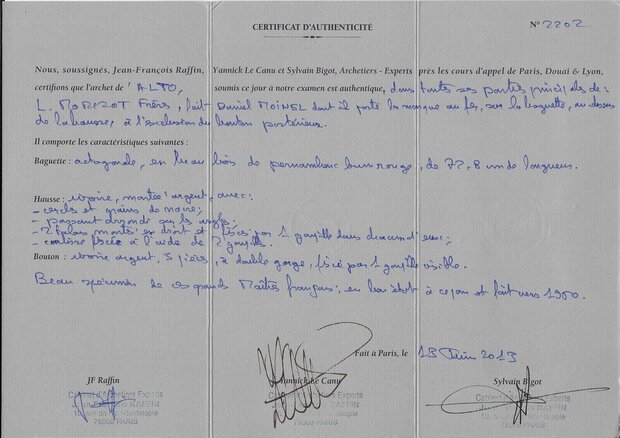 CERTIFICAT D'AUTHENTICITÉ
N° 2202
Nous, soussignés, Jean-François Raffin, Yannick Le Canu et Sylvain Bigot, Archetiers - Experts près les cours d'appel de Paris, Douai & Lyon,
certifions que l'archet de ALTO, soumis ce jour à notre examen est authentique, dans toutes ses parties principales de :
L. MORIZOT Frères, fait Daniel MOINEL dont il porte la marque au fer, sur la baguette, au dessus
de la hausse, à l'exclusion du bouton postérieur.
Il comporte les caractéristiques suivantes :
Baguette : octogonale, en beau bois de pernambouc brun rouge, de 72,8 cm de longueur.
Hausse : ivoire, montée argent, avec :
- cercles et grains de nacre;
- passant arrondi sur les angles;
- 2 talons montés en droit et fixés par 1 goupille dans chacun d'eux;
- coulisse fixée à l'aide de 2 goupilles.
Bouton : ivoire argent, 3 pièces, à double gorge, fixé par 1 goupille visible.
Beau spécimen de ces grands Maîtres français, en bon état à ce jour et fait vers 1950.
Fait à Paris, le 13 Juin 2013
JF Raffin
Yannick Le Canu
Sylvain Bigot
Cabinet d'Archetiers Experts
RAFFIN
75008 PARIS
Cabinet d'Archetiers Experts
RAFFIN
75008 PARIS